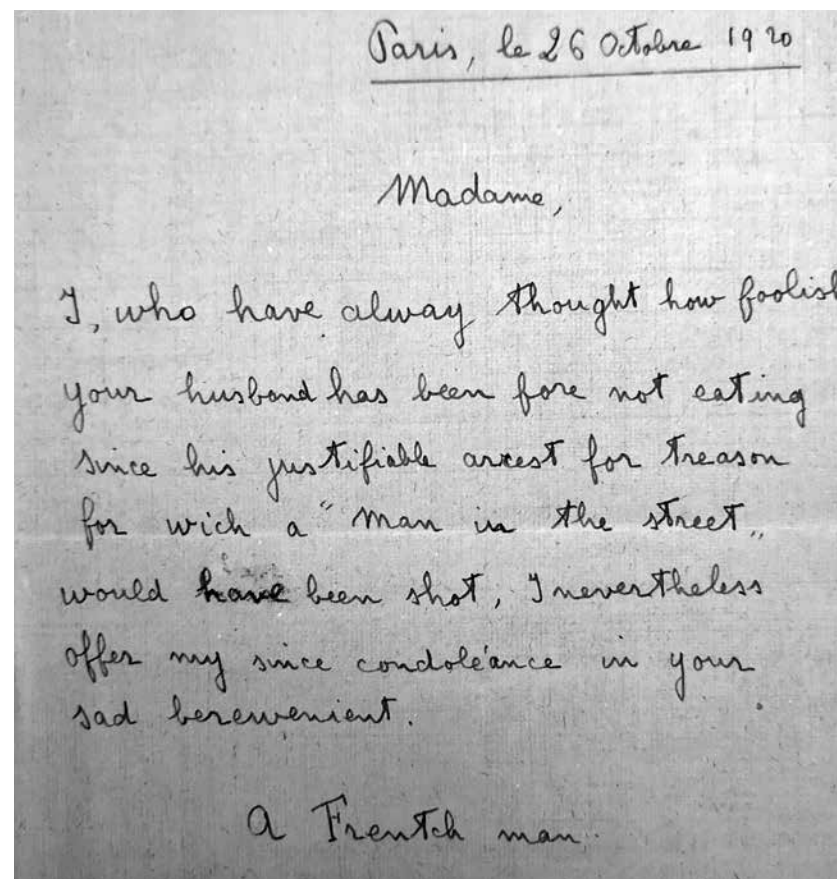 Paris, le 26 Octobre 1920
Madame,
I, who have alway thought how foolish
your husband has been fore not eating
since his justifiable arrest for treason
for wich a "man in the street„
would have been shot, I nevertheless
offer my since condoléance in your
sad berewenient.
A Frentch man.